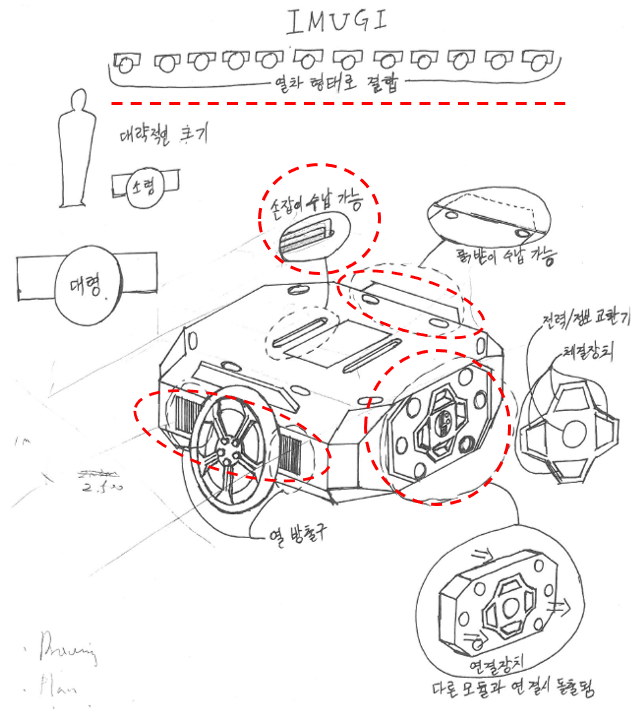 IMUGI
열차 형태로 결합
대략적인 크기
소형
대형
손잡이 수납 가능
턱받이 수납 가능
전력/정보 교환기
체결장치
2.500
열 방출구
연결장치
다른 모듈과 연결시 돌출됨
· Drawing
· Plan